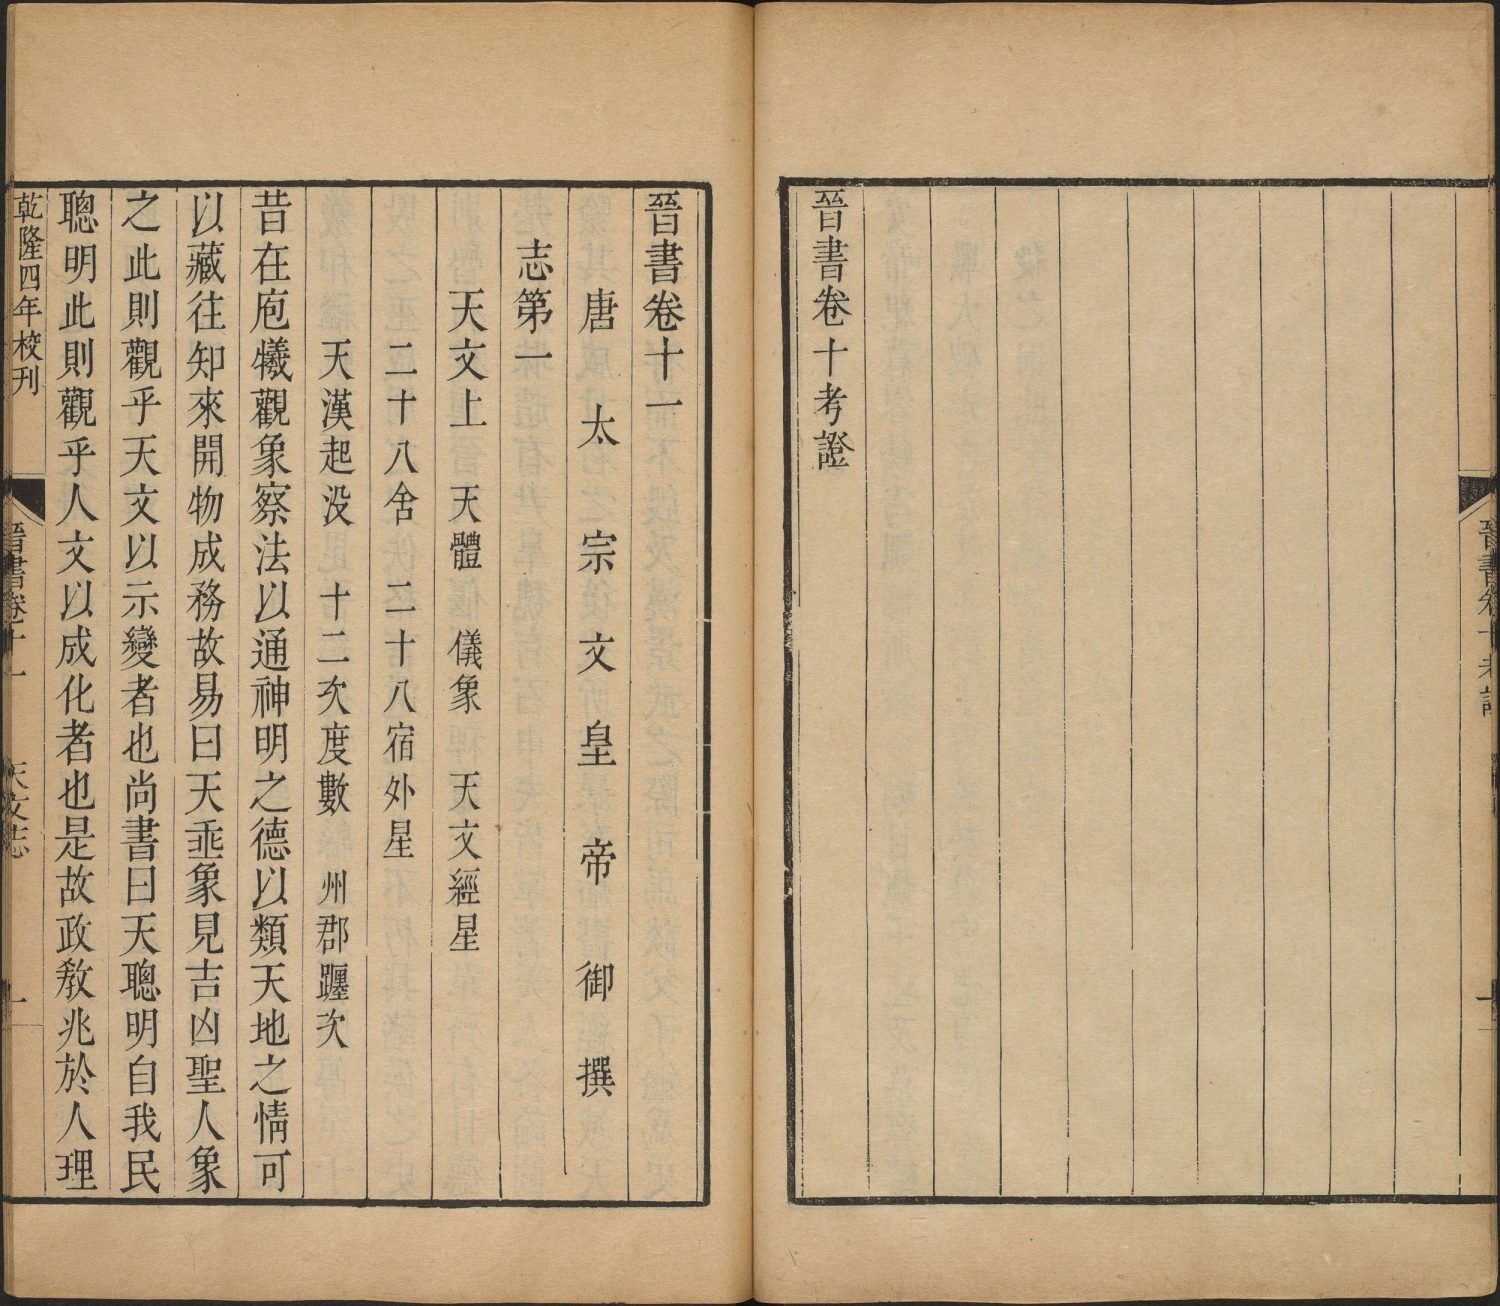 晉書卷十考證
晉書卷十一
唐太宗文皇帝御撰
志第一
天文上 天體 儀象 天文經星
二十八舍 二十八宿外星
天漢起没 十二次度數 州郡躔次
昔在庖犧觀象察法以通神明之德以類天地之情可
以藏往知來開物成務故易曰天垂象見吉凶聖人象
之此則觀乎天文以示變者也尚書曰天聰明自我民
聰明此則觀乎人文以成化者也是故政教兆於人理
乾隆四年校刊
晉書卷十一 天文志 一